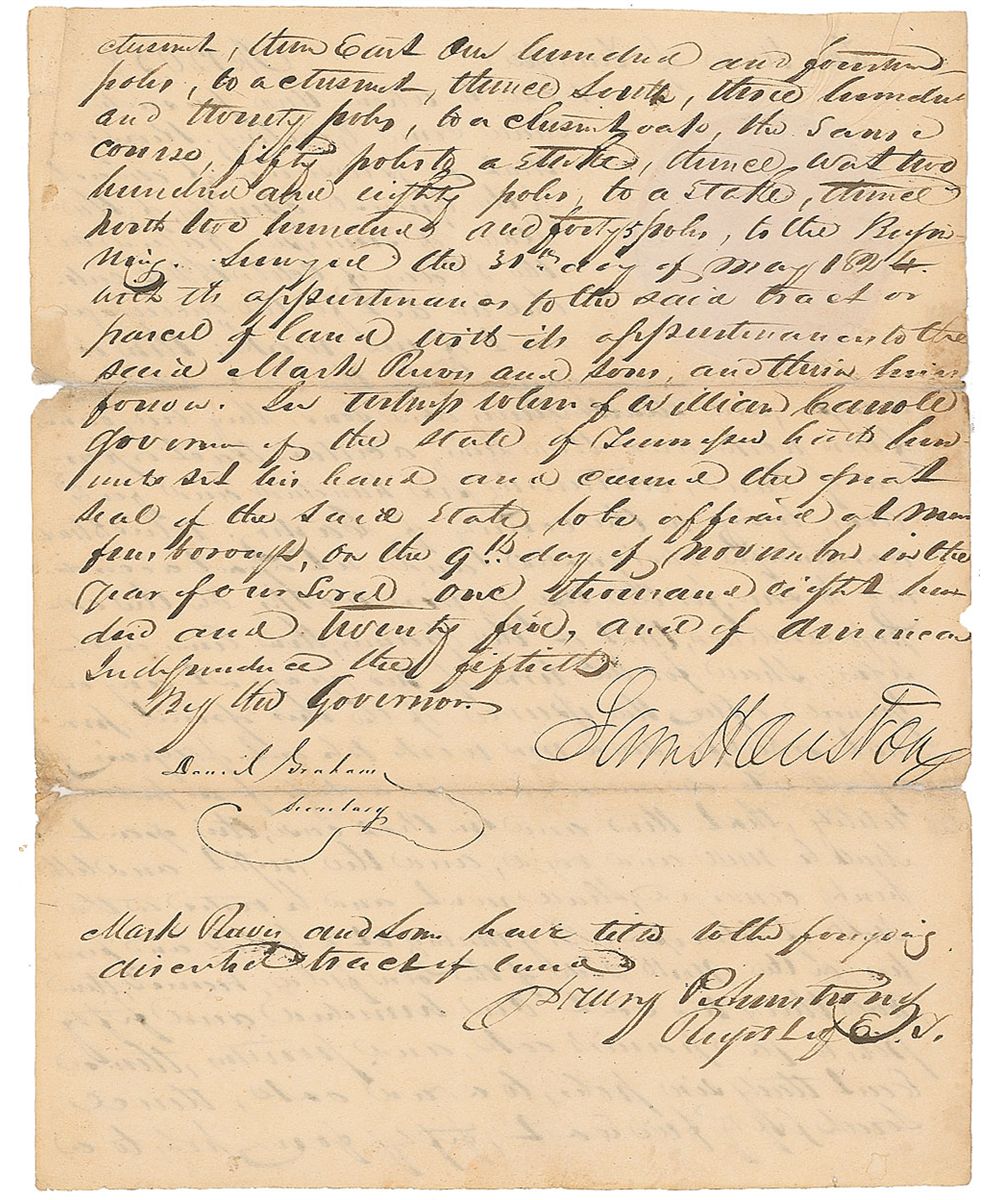 chesnut, then East one hundred and fourteen
poles, to a chesnut, thence South, three hundred
and twenty poles, to a chesnut oak, the same
course, fifty poles to a stake, thence west two
hundred and eighty poles, to a stake, thence
north two hundred and forty 5 poles, to the Begin
ning. Surveyed the 31st day of May 1824.
with its appurtenances to the said tract or
parcel of land with its appurtenances to the
said Mark and Sons, and their heirs
forever. In testimony whereof William Carroll
Governor of the state of Tennessee hath here
unto set his hand and caused the great
seal of the said State, to be affixed at Mur
freesborough, on the 9th day of November in the
year of our Lord one thousand eight hun
dred and twenty five, and of American
Independence the fiftieth
By the Governor.
Sam Houston
Daniel Graham
Secretary
Mark and Sons have title to the foregoing
described tract of land
Drury P. Armstrong
Register of E. T.